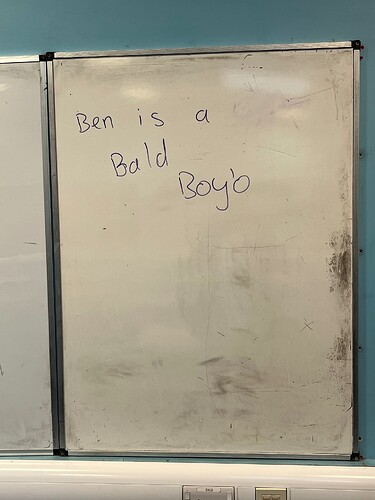 Ben is a
Bald
Boy'o